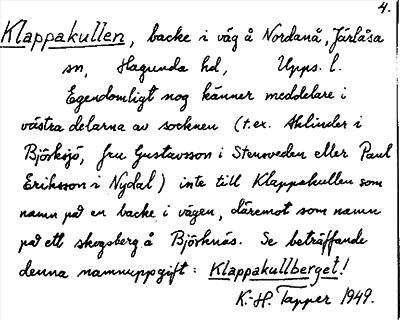 4.
Klappakullen, backe i väg å Nordanå, Järlåsa
sn, Hagunda hd, Upps. l.
Egendomligt nog känner meddelare i
västra delarna av socknen (t.ex. Ahlinder i
Björksjö, fru Gustavsson i Stensveden eller Paul
Eriksson i Nydal) inte till Klappakullen som
namn på en backe i vägen, däremot som namn
på ett skogsberg å Björknäs. Se beträffande
denna namnuppgift: Klappakullberget!
K.-H. Tapper 1949.